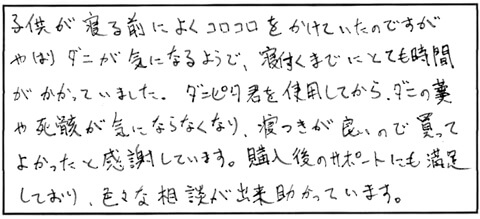 子供が寝る前によくコロコロをかけていたのですが
やはりダニが気になるようで、寝付くまでにとても時間
がかかっていました。ダニピタ君を使用してから、ダニの糞
や死骸が気にならなくなり、寝つきが良いので買って
よかったと感謝しています。購入後のサポートにも満足
しており、色々な相談が出来助かっています。